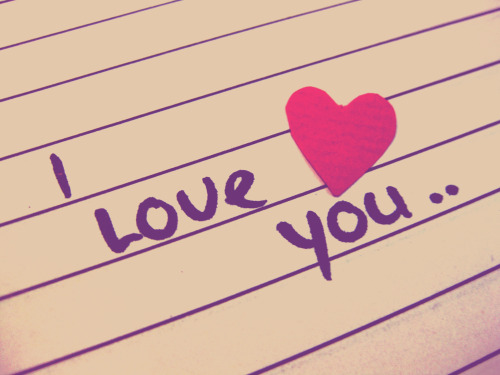 I Love you..